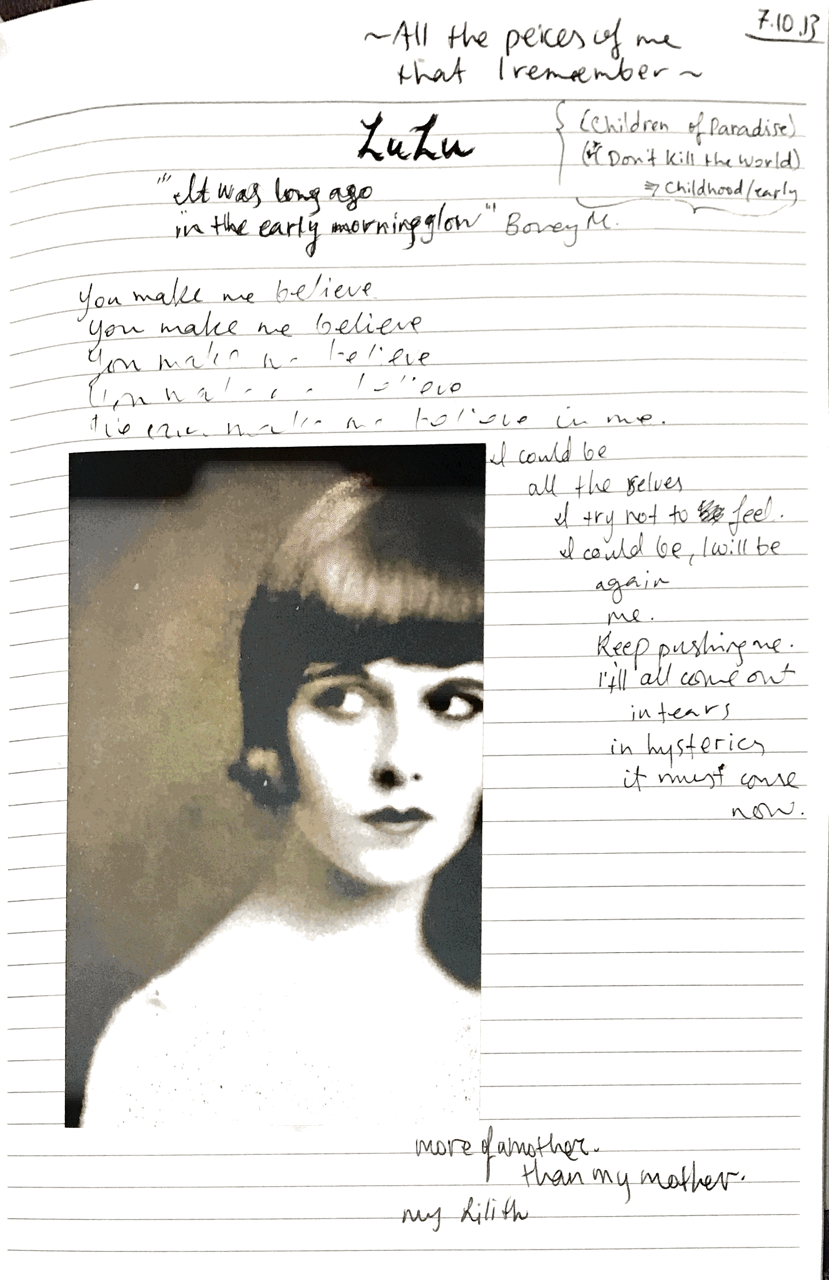 7.10.13
~All the peices of me
that I remember~
LuLu
{ (Children of Paradise)
(Don't Kill the World)
⇒ Childhood/early
"It was long ago
in the early morning glow" Boney M.
You make me believe
You make me believe
You make me believe
You make me believe
make me believe in me.
I could be
all the selves
I try not to feel.
I could be, I will be
again
me.
Keep pushing me.
I'll all come out
in tears
in hysterics
it must come
now.
more of a mother.
than my mother.
my Lilith